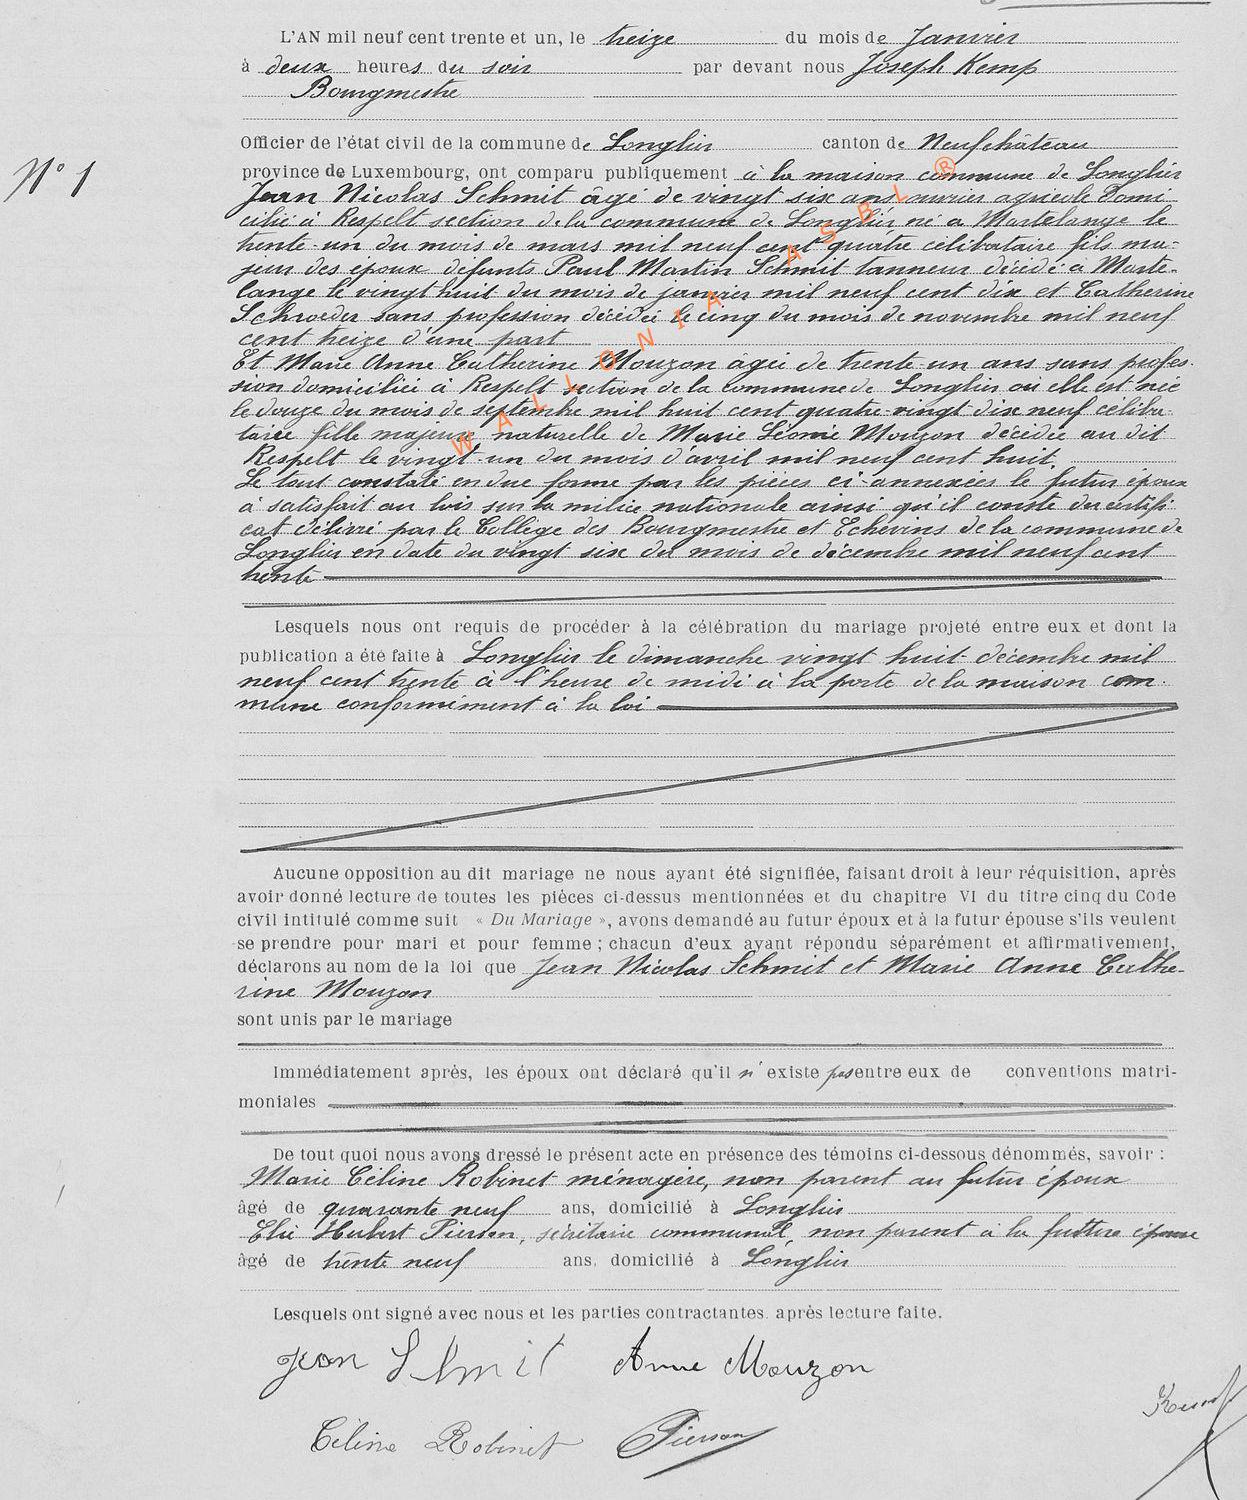 L'AN mil neuf cent trente et un, le treize du mois de Janvier
à deux heures du soir par devant nous Joseph Kemp
Bourgmestre
Officier de l'état civil de la commune de Longlier canton de Neufchâteau
N° 1
province de Luxembourg, ont comparu publiquement à la maison commune de Longlier
Jean Nicolas Schmit âgé de vingt six ans ouvrier agricole domi
cilié à Respelt section de la commune de Longlier né à Martelange le
trente un du mois de mars mil neuf cent quatre célibataire fils ma-
jeur des époux défunts Paul Martin Schmit tanneur décédé à Marte-
lange le vingt huit du mois de janvier mil neuf cent dix et Catherine
Schroeder sans profession décédée le cinq du mois de novembre mil neuf
cent treize d'une part
Et Marie Anne Catherine Mouzon âgée de trente un ans sans profes-
sion domiciliée à Respelt section de la commune de Longlier où elle est née
le douze du mois de septembre mil huit cent quatre-vingt dix neuf céliba-
taire fille majeure naturelle de Marie Léonie Mouzon décédée au dit
Respelt le vingt-un du mois d'avril mil neuf cent huit.
Le tout constaté en due forme par les pièces ci-annexées le futur époux
à satisfait au lois sur la milice nationale ainsi qu'il conste du certifi
cat délivré par le Collège des Bourgmestre et Echevins de la commune de
Longlier en date du vingt six du mois de décembre mil neuf cent
trente
Lesquels nous ont requis de procéder à la célébration du mariage projeté entre eux et dont la
publication a été faite à Longlier le dimanche vingt huit décembre mil
neuf cent trente à l'heure de midi à la porte de la maison com-
mune conformément à la loi
Aucune opposition au dit mariage ne nous ayant été signifiée, faisant droit à leur réquisition, après
avoir donné lecture de toutes les pièces ci-dessus mentionnées et du chapitre VI du titre cinq du Code
civil intitulé comme suit « Du Mariage », avons demandé au futur époux et à la future épouse s'ils veulent
se prendre pour mari et pour femme ; chacun d'eux ayant répondu séparément et affirmativement,
déclarons au nom de la loi que Jean Nicolas Schmit et Marie Anne Cathe-
rine Mouzon
sont unis par le mariage
Immédiatement après, les époux ont déclaré qu'il n'existe pas entre eux de conventions matri-
moniales
De tout quoi nous avons dressé le présent acte en présence des témoins ci-dessous dénommés, savoir :
Marie Céline Robinet ménagère, non parent au futur époux
âgé de quarante neuf ans, domicilié à Longlier
Elie Hubert Pierson, secrétaire communal, non parent à la future épouse
âgé de trente neuf ans, domicilié à Longlier
Lesquels ont signé avec nous et les parties contractantes. après lecture faite.
Jean Schmit Anne Mouzon
Kemp
Céline Robinet Pierson
WALLONIA ASBL ®